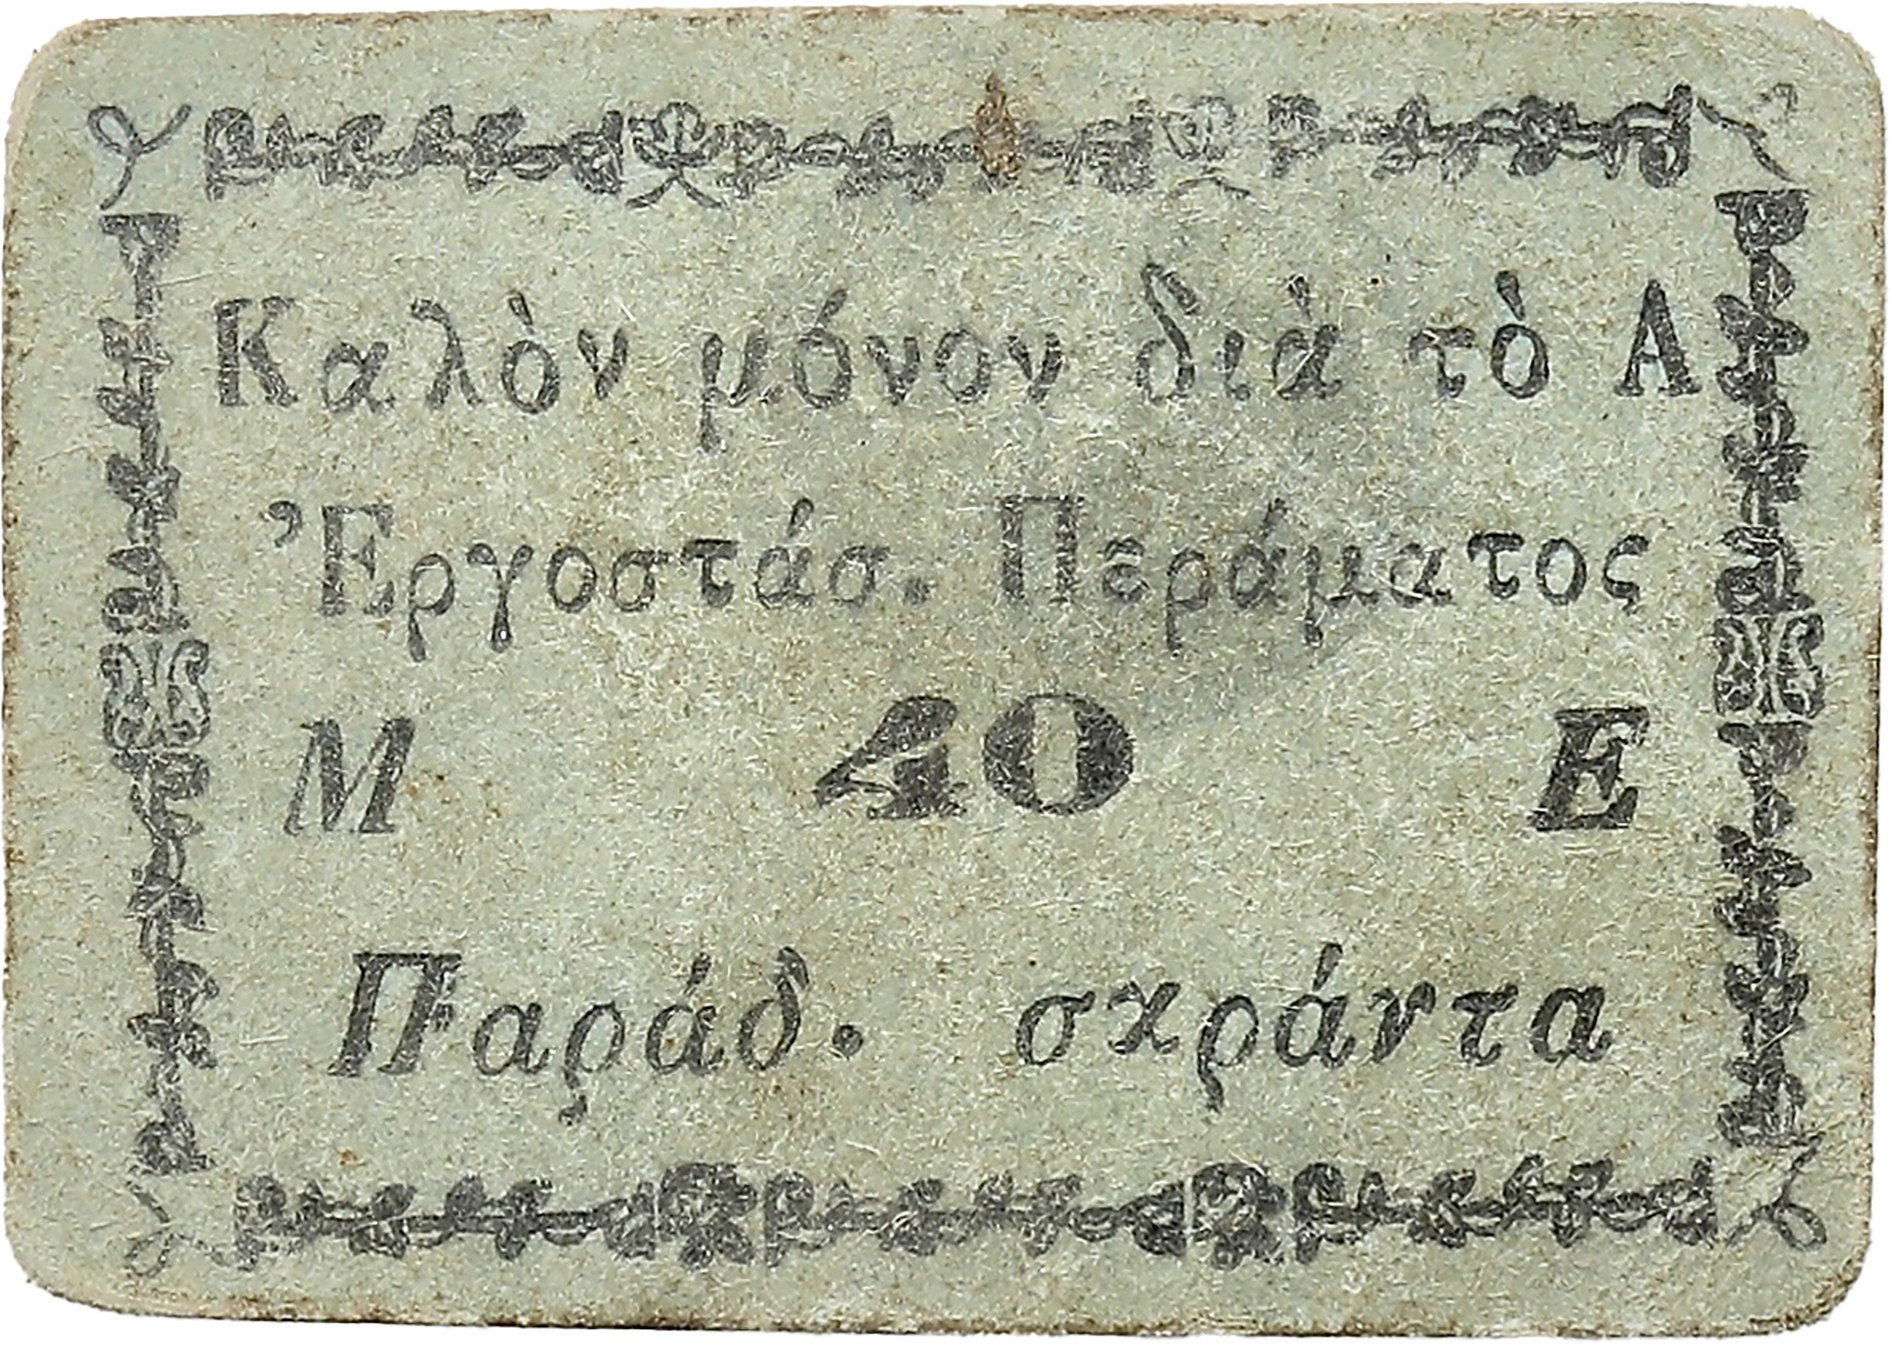 Καλὸν μόνον διὰ τὸ Α
Ἐργοστάσ. Περάματος
Μ 40 Ε
Παράδ. σκράντα